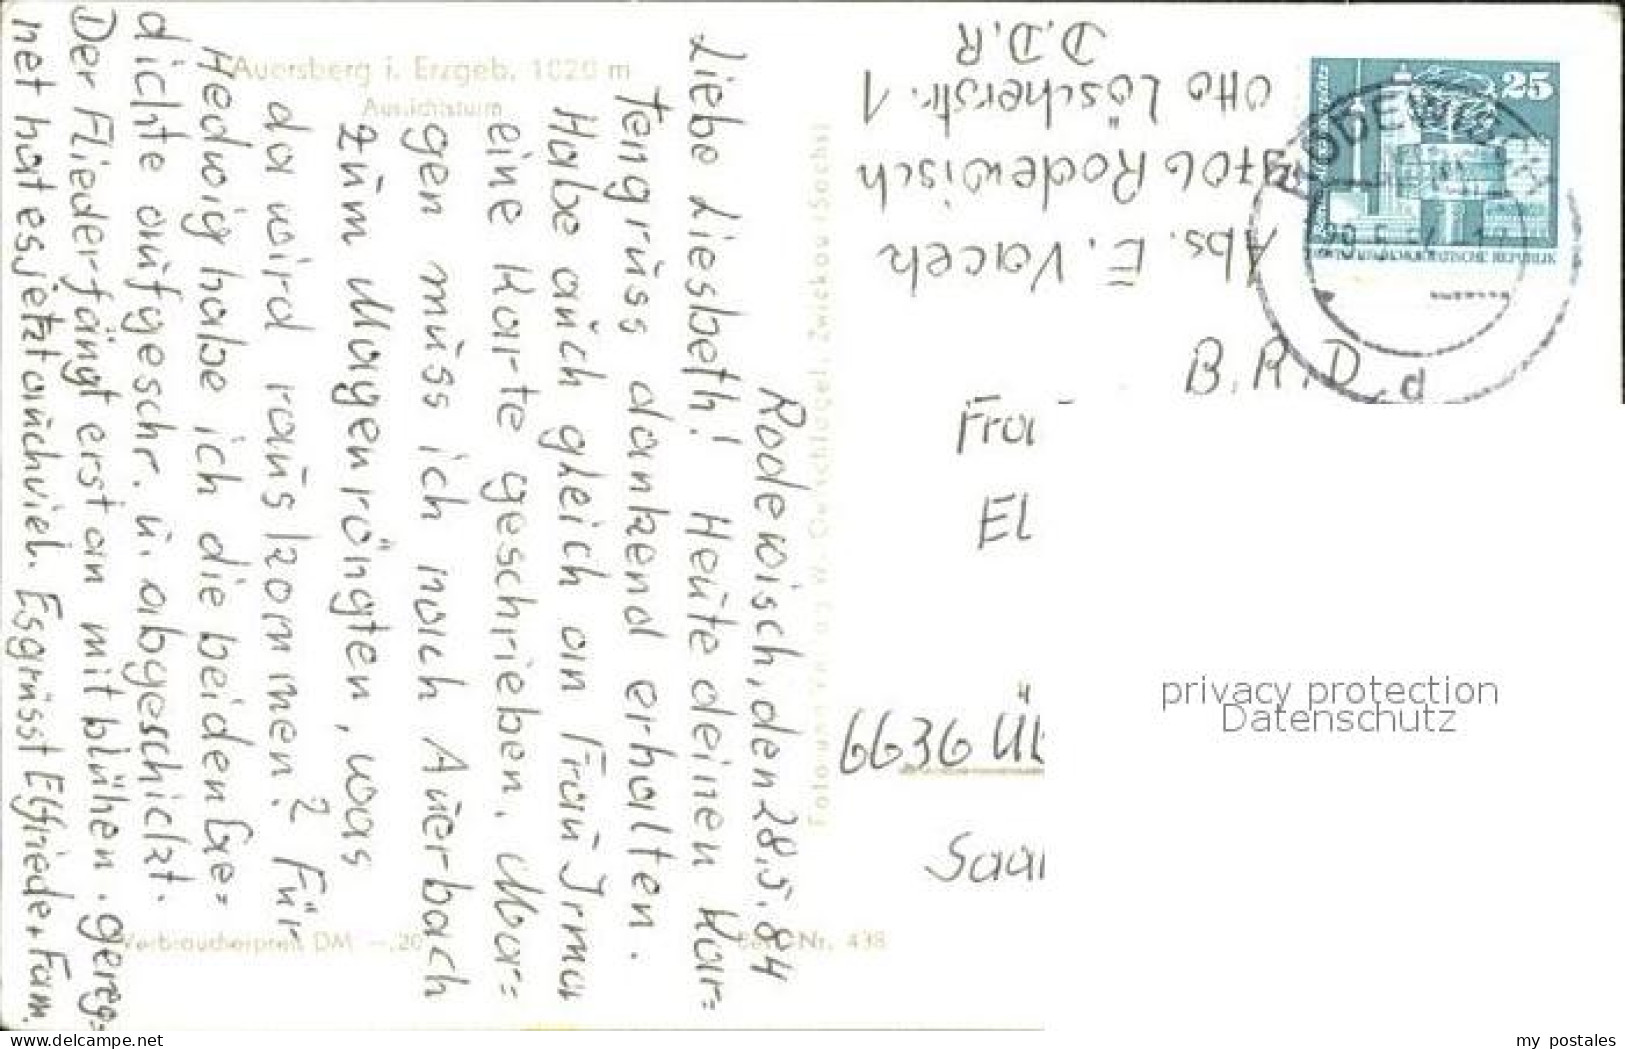 Auersberg i. Erzgeb. 1020 m
Aussichtsturm
Rodewisch, den 28.5.84
Liebe Liesbeth! Heute deinen Kar=
tengrüss dankend erhalten.
Habe auch gleich an Frau Irma
eine Karte geschrieben. Mor=
gen müss ich nach Auerbach
zum Magenröngten, was
da wird rauskommen? Für
Hedwig habe ich die beiden Ge=
dichte aufgeschr. u. abgeschickt.
Der Flieder fängt erst an mit blühen. gereg=
net hat es jetzt auch viel. Es grüsst Elfriede + Fam.
Verbraucherpreis DM -.20
Best.-Nr. 438
Foto und Verlag W. Zwickau (Sachs)
Abs. E. Vaceh
9706 Rodewisch
Otto Löscherstr. 1
D.D.R
25
RODEWISCH
DEUTSCHE DEMOKRATISCHE REPUBLIK
d
B.R.D.
Frau
El
6636 Üb
Saar
privacy protection
Datenschutz
www.ansichtskartenlexikon.de
my postales